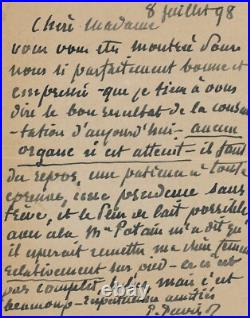 8 juillet 98
Chère Madame
vous vous êtes montrée pour
nous si parfaitement bonne et
empressée que je tiens à vous
dire le bon resultat de la consul
tation d'aujourd'hui - aucun
organe n'est atteint - il faut
du repos, une patience à toute
une prudence sans
treve, et le plus de lait possible
avec cela Mr Potain m'a dit qu'
il
relativement sur pied - ce n'est
pas complet, mais c'est
beaucoup - amitiés